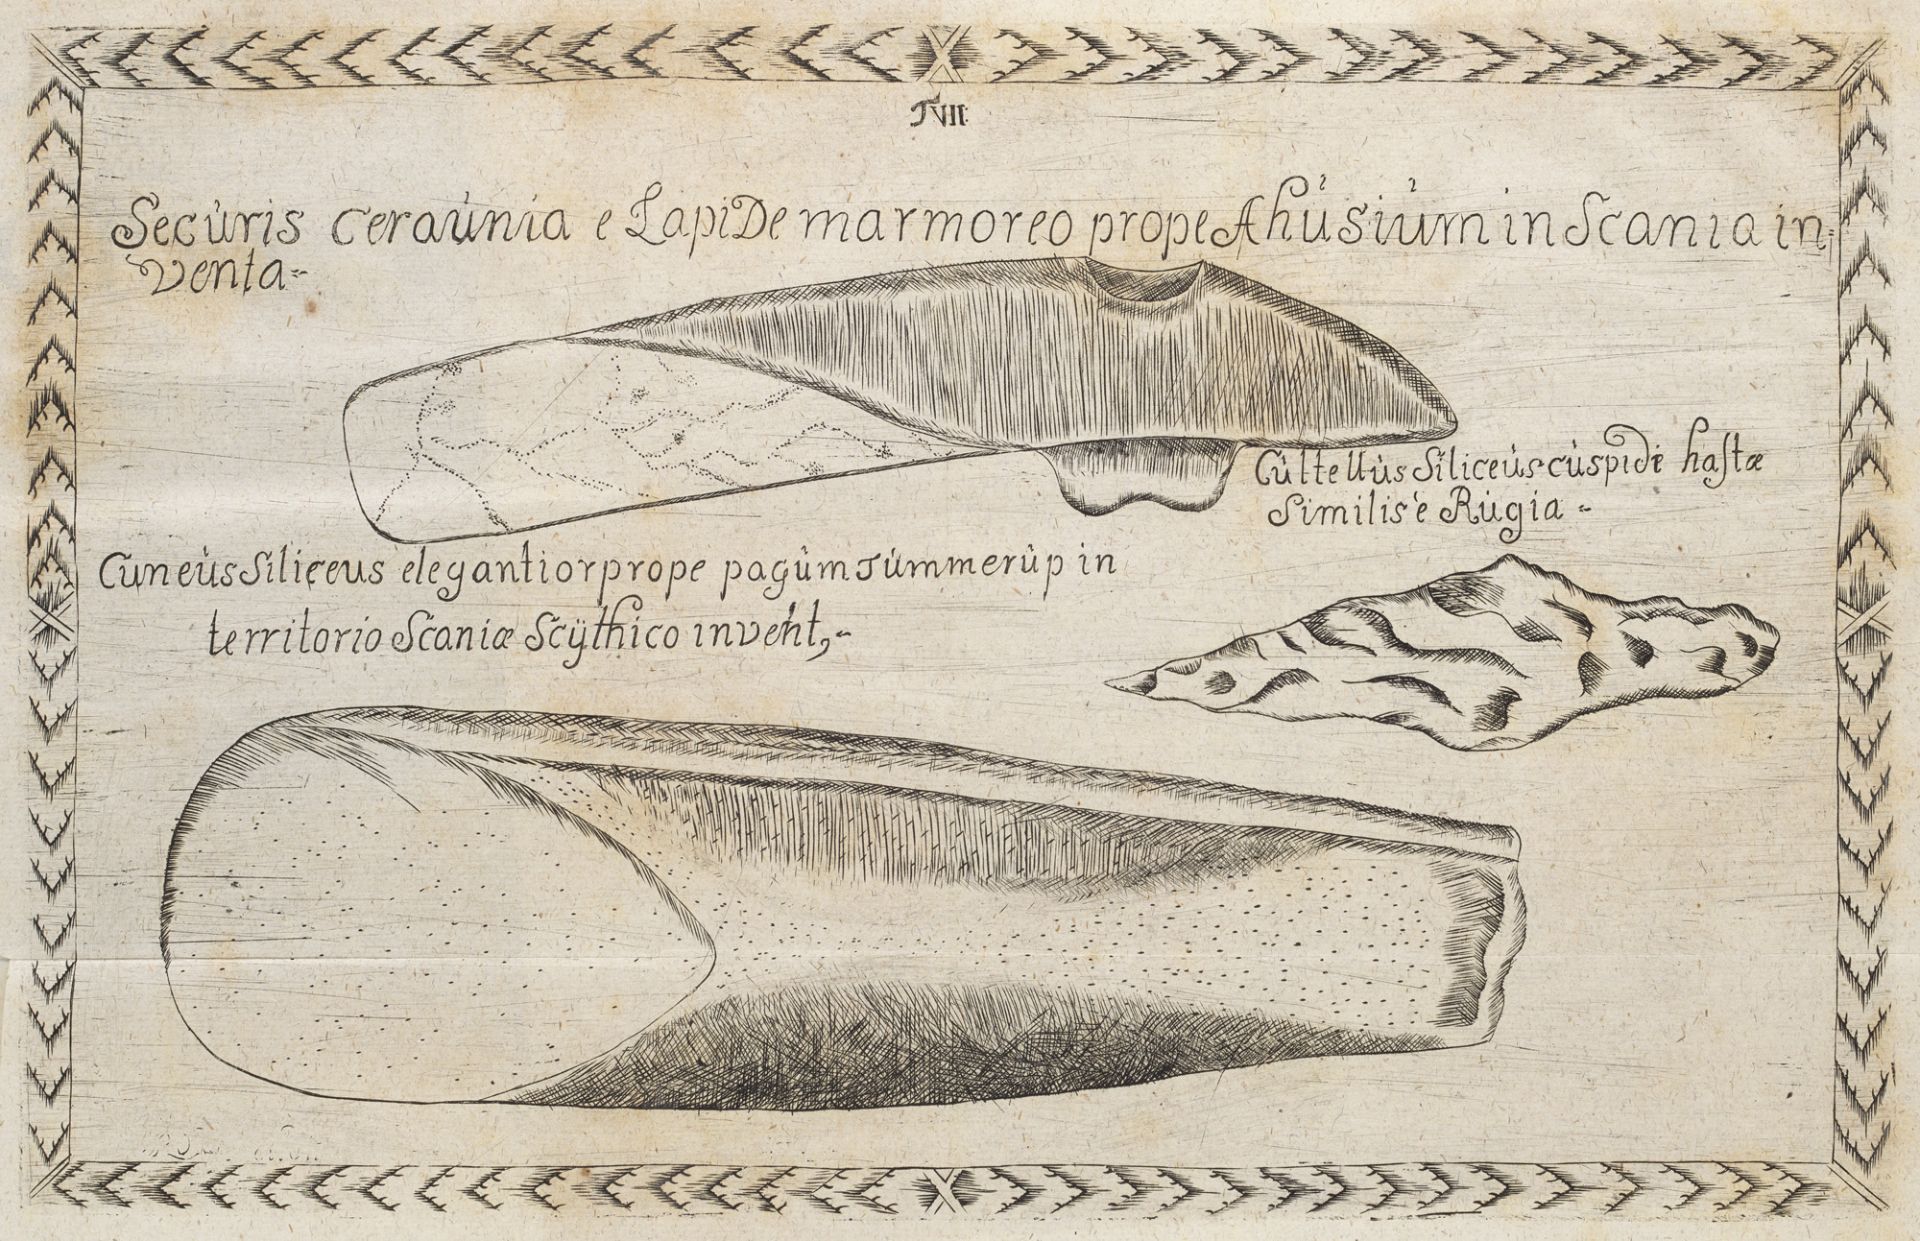 TVII
Secùris ceraùnia e LapiDe marmoreo prope Ahùsiùm in Scania in=
venta
Cùltellùs Siliceùs cùspide hastæ
Similis è Rùgia
Cùneùs Siliceus elegantior prope pagùm Tùmmerùp in
territorio Scaniæ Scÿthico invent,